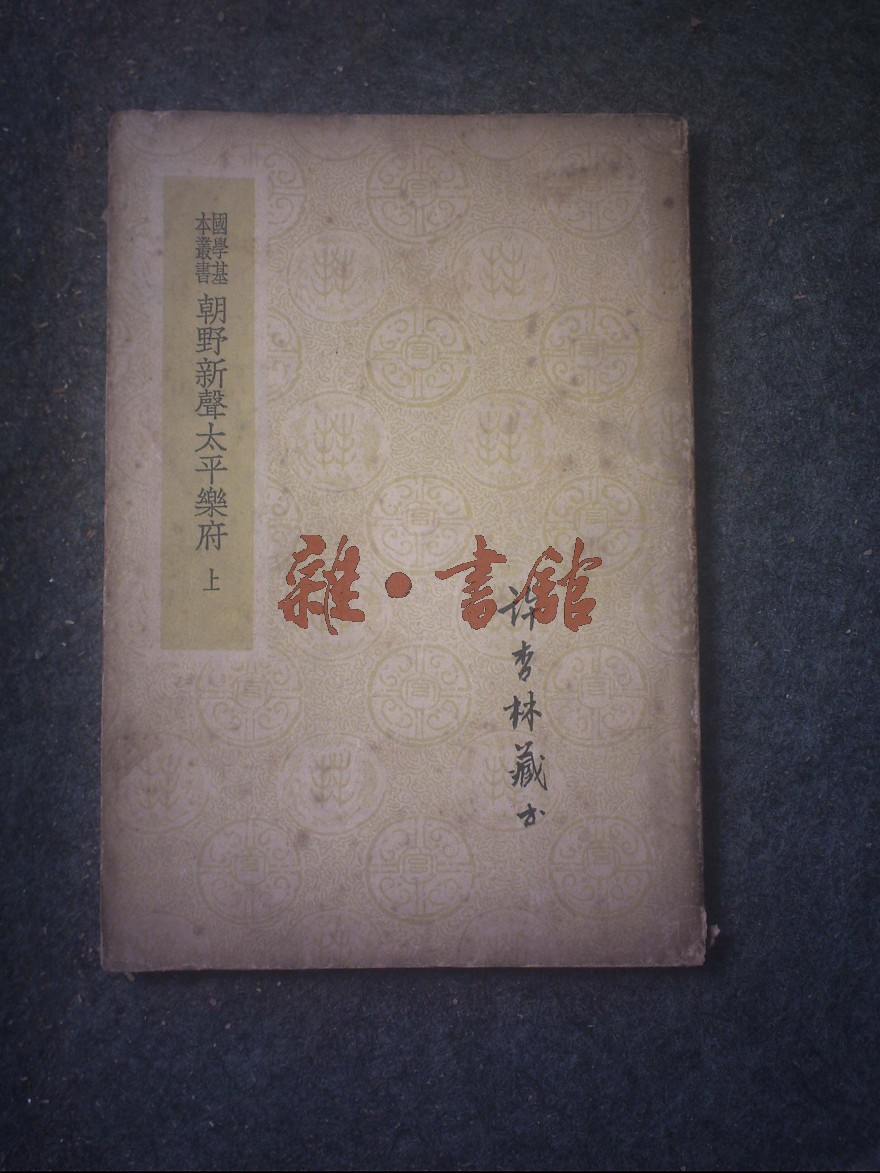 國學基本叢書
朝野新聲太平樂府 上
雜·書舘
許杏林藏书